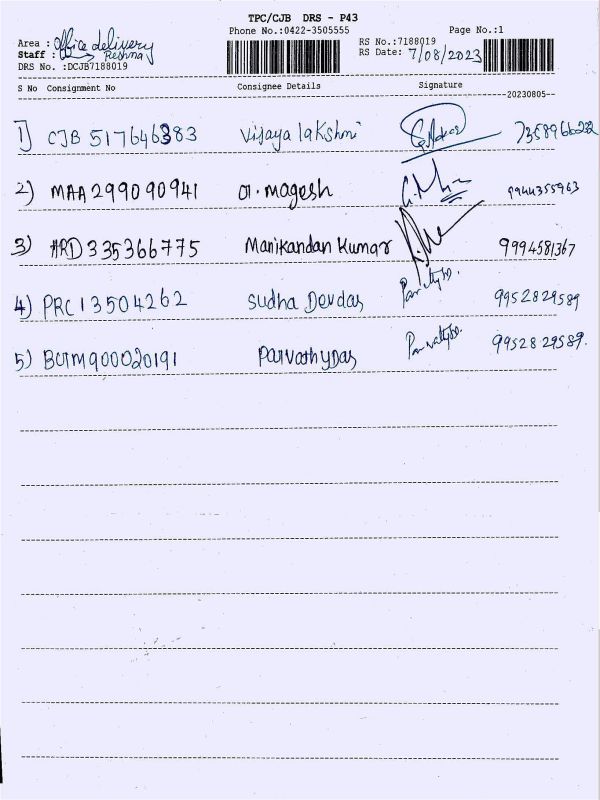 TPC/CJB DRS - P43
Phone No.:0422-3505555 Page No.:1
Area : office delivery RS No.:7188019
Staff : Reshma RS Date: 7/08/2023
DRS No. :DCJB7188019
S No Consignment No Consignee Details Signature
20230805
1) CJB 517646383 Vijaya lakshmi
2) MAA 299090941 magesh 9944355963
3) HRD 335366775 Manikandan Kumar 9994581367
4) PRC 13504262 Sudha Devdas 9952829589
5) 900020191 Parvathy Das 9952829589.